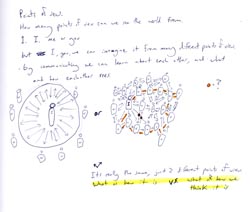 Points of view.
How many points of view can we see the world from
I. I, me or ego
but I, you, we can imagine it from many different points of view
- by communicating we can learn about each other, and what
and how each other sees
or
= ?
It's really the same, just 2 different points of view
What is how it is vs what of how we
think it is